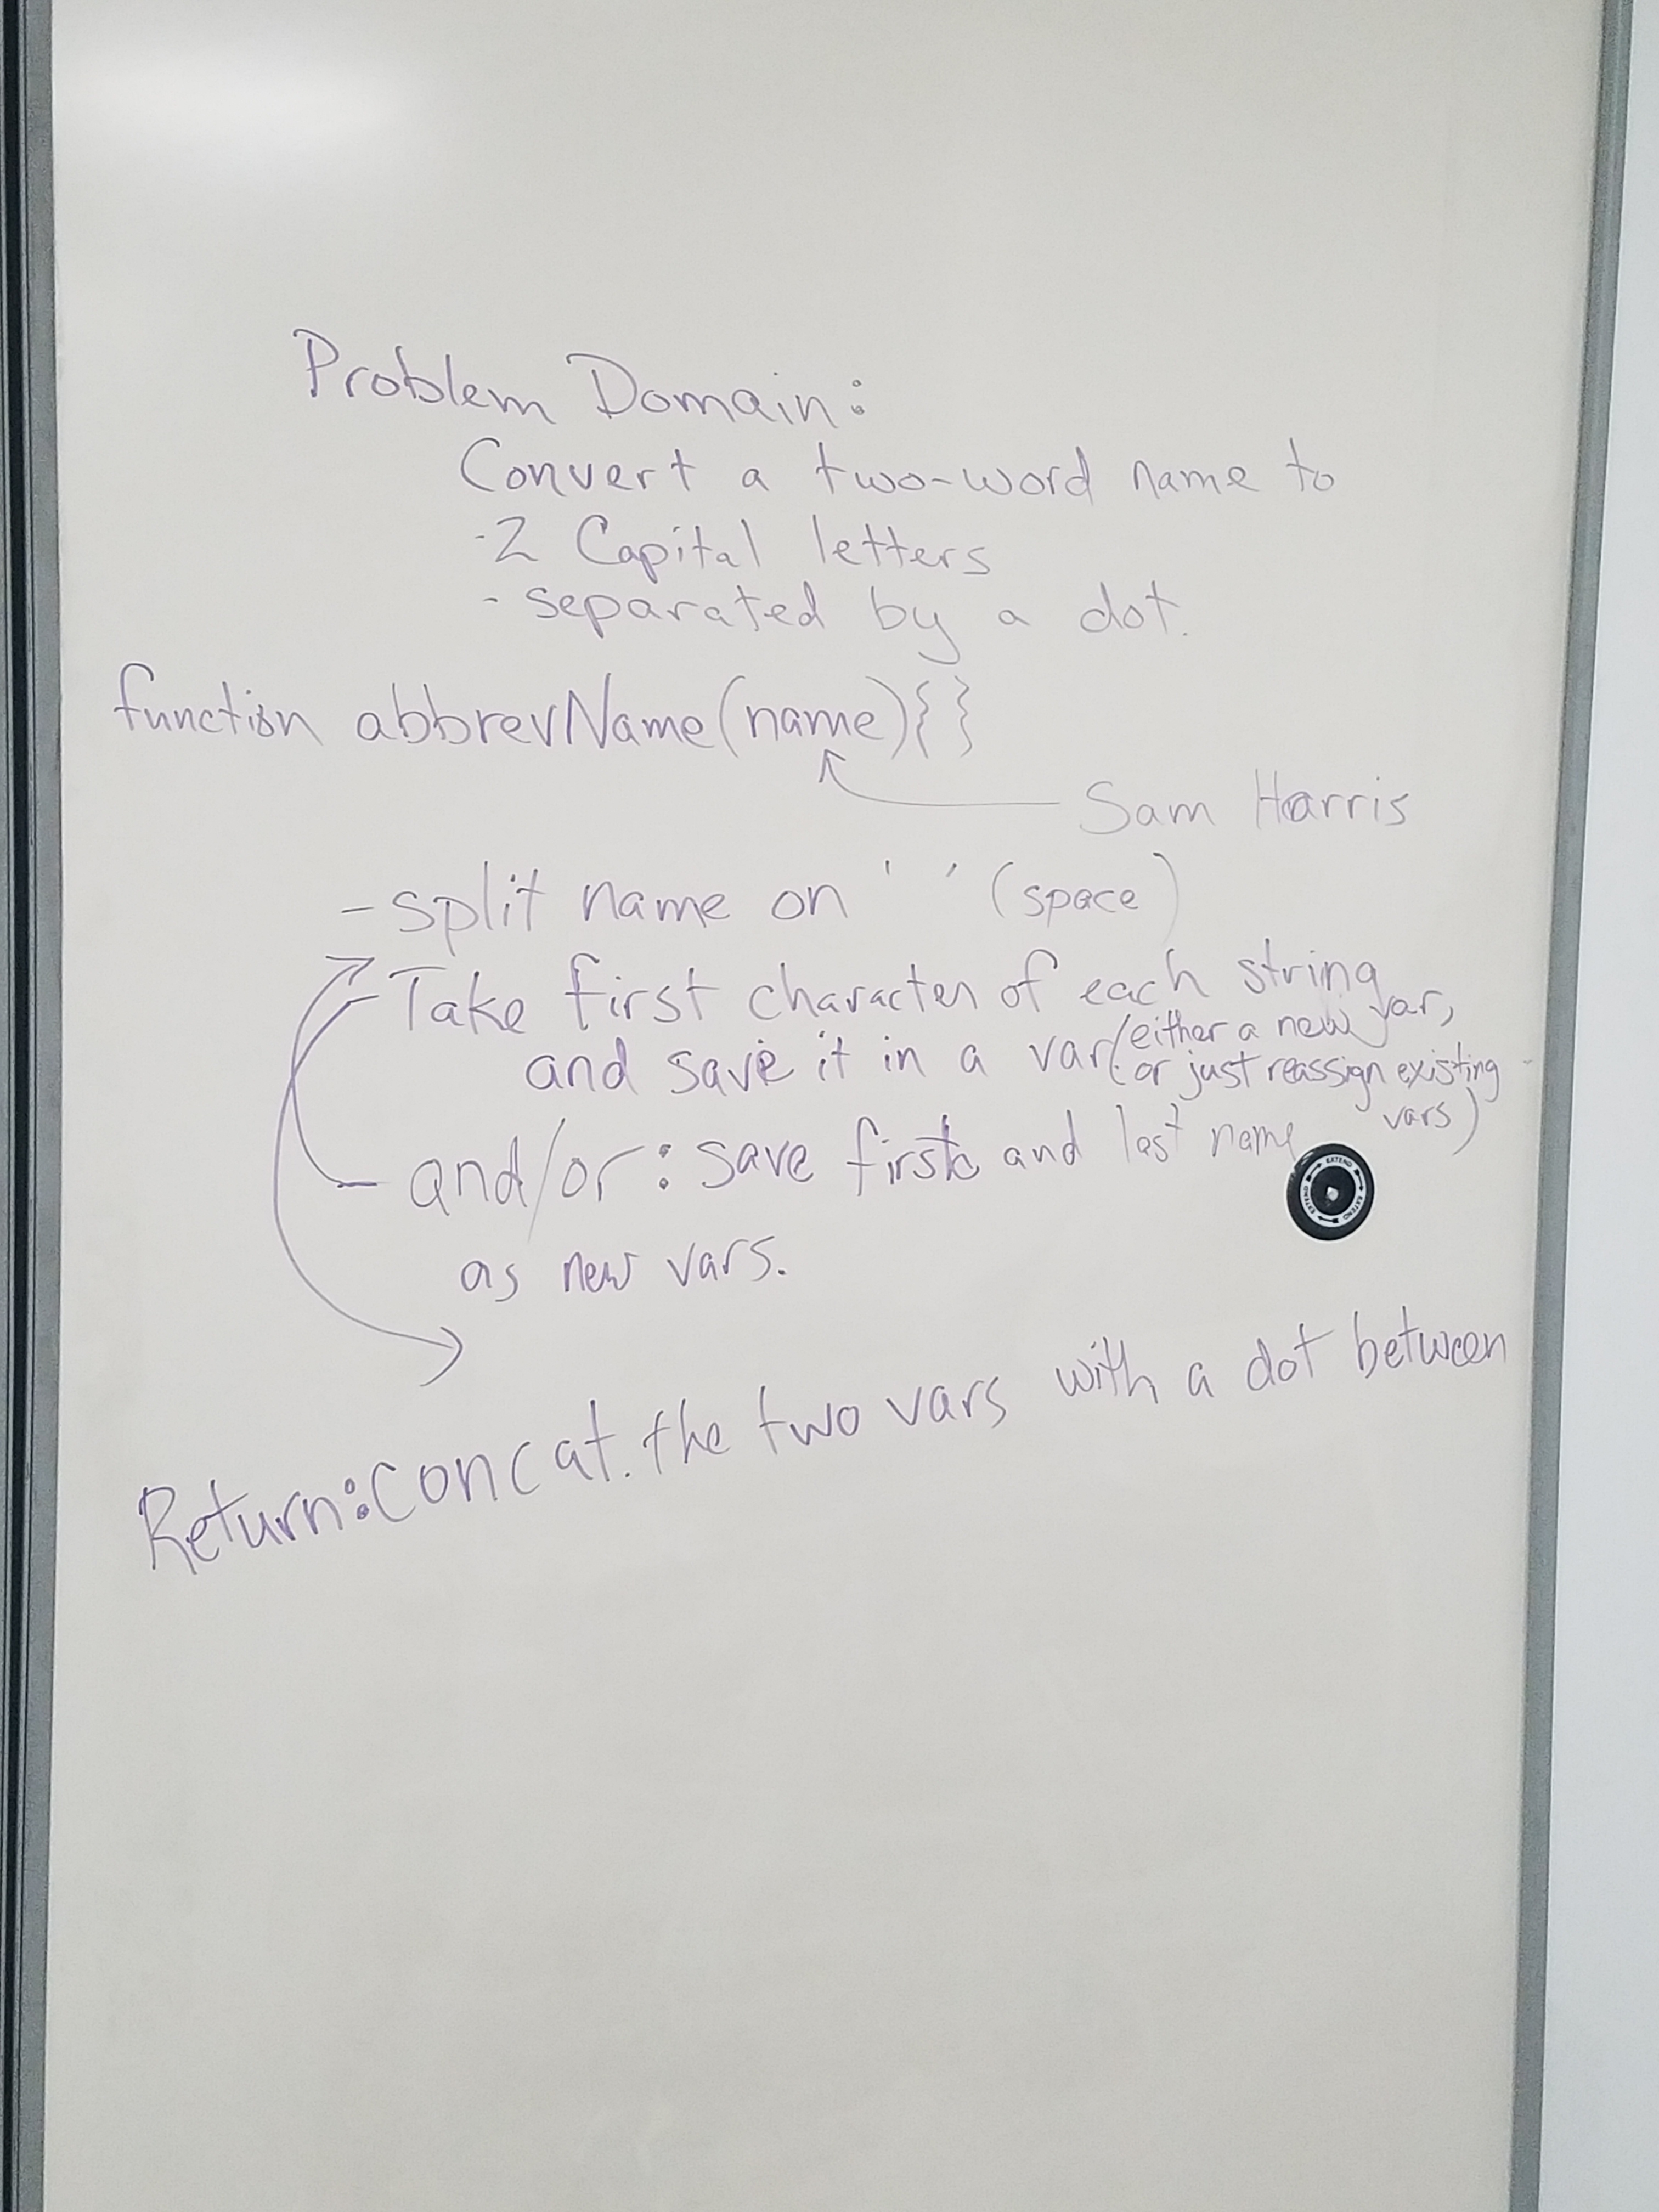 Problem Domain:
Convert a two-word name to
-2 Capital letters
- separated by a dot.
function abbrevName(name){}
Sam Harris
- split name on ' ' (space)
- Take first character of each string
and save it in a var (either a new var,
or just reassign existing
vars)
- and/or: save first and last name
as new vars.
Return: concat. the two vars with a dot between
EXTEND EXTEND EXTEND